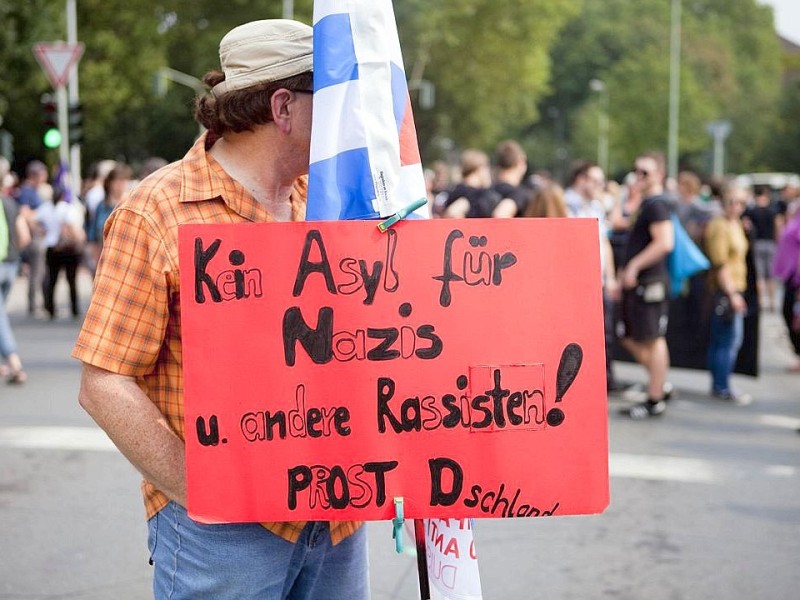 Kein Asyl für
Nazis
u. andere Rassisten!
PROST Dschland